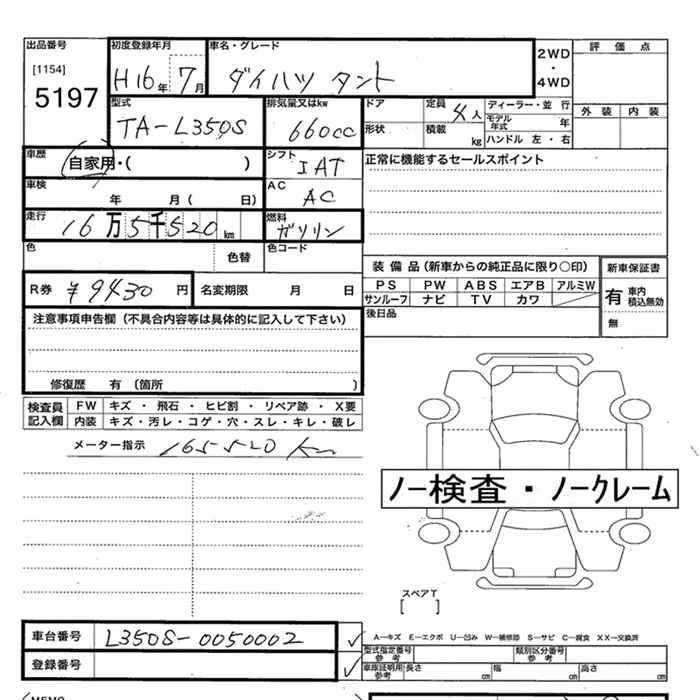 出品番号 初度登録年月 車名・グレード 評価点
[1154] 2WD
5197 H16年 7月 ダイハツ タント ・
4WD 外装 内装
型式 排気量又はkw ドア 定員 4人 ディーラー・並行
TA-L350S 660cc 形状 積載 kg モデル年式 年
ハンドル 左・右
車歴 自家用・( ) シフト IAT 正常に機能するセールスポイント
車検 年 月( 日) AC AC
走行 16万5千520km 燃料 ガソリン
色 色替 色コード
装備品(新車からの純正品に限り○印) 新車保証書
R券 ¥9430円 名変期限 月 日 PS PW ABS エアB アルミW 有 車内積込無効
サンルーフ ナビ TV カワ
注意事項申告欄(不具合内容等は具体的に記入して下さい) 後日品 無
修復歴 有 (箇所 )
検査員 FW キズ・飛石・ヒビ割・リペア跡・X要
記入欄 内装 キズ・汚レ・コゲ・穴・スレ・キレ・破レ
メーター指示 165520km
ノー検査・ノークレーム
スペアT
[ ]
車台番号 L350S-0050002 A-キズ E-エクボ U-凹み W-補修跡 S-サビ C-腐食 XX-交換済
型式指定番号 参考 類別区分番号 参考
登録番号 車庫証明用 参考 長さ cm 幅 cm 高さ cm
MEMO